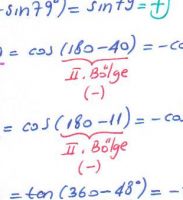 -sin79°) = sin79 = (+)
= cos(180-40) = -co
II. Bölge
(-)
= cos(180-11) = -co
II. Bölge
(-)
= tan(360-48°) = -